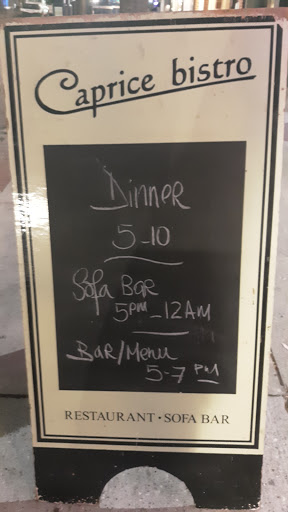 Caprice bistro
Dinner
5-10
Sofa Bar
5pm - 12AM
Bar/Menu
5-7 PM
RESTAURANT · SOFA BAR